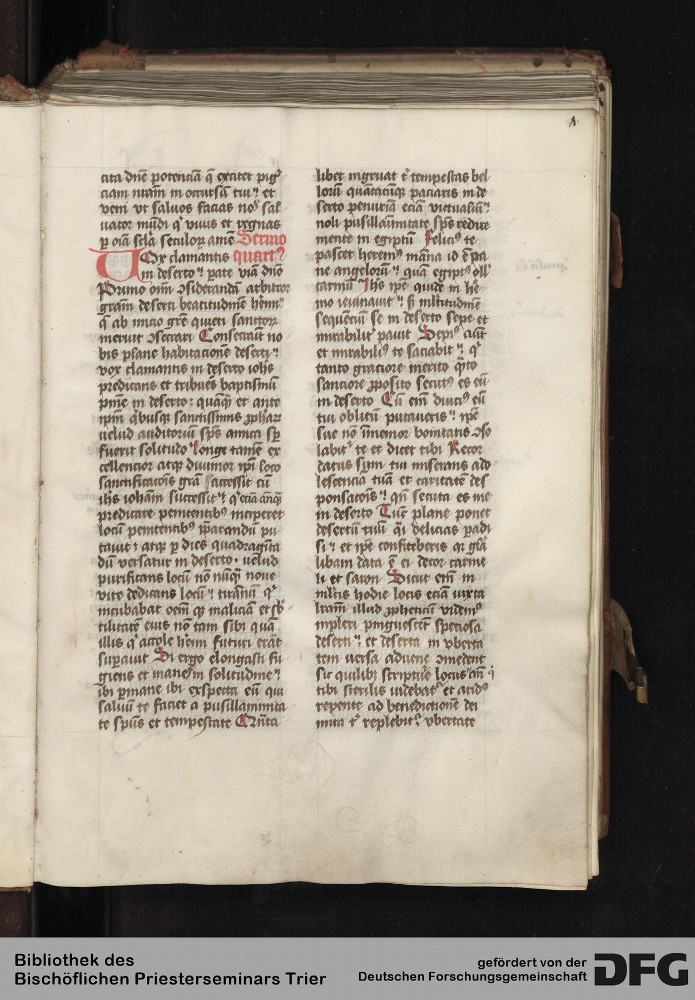 A
cita dñe potenciã q̃ excitet pigᵉ
ciam nr̃am in occursũ tuũ et
veni vt saluos facias noˢ sal
uator mũdi qⁱ viuis et regnas
p oĩa sc̃la seculoꝝ amẽ Sermo
Vox clamantis quartꝰ
in deserto ꝑate viã dñĩ
Primo om̃ ꝯsiderandã arbitror
gr̃am deserti beatitudinẽ h̓emi
q̃ ab inicio gr̃e quieti sanctoꝝ
meruit ꝯsecrari Consecrauit no
bis plane habitacionẽ deserti
vox clamantis in deserto ioh̃s
predicans et tribuẽs baptismũ
pñie in deserto
ip̃m q̓busqꝫ sanctissimis ꝓphaꝝ
uelud auditoriũ sp̃s amica sꝑ
fuerit solitudo Longe tamẽ ex
cellencior atqꝫ diuinior ip̃i loco
sanctificaciõis gr̃a accessit cũ
ih̃s ioh̃ãni successit
predicare penitentibꝰ inciperet
locũ penitentibꝰ p̃parandũ pu
tauit atqꝫ p dies quadraginta
dũ versatur in deserto uelud
purificans locũ
vite dedicans locũ tirannũ qⁱ
incubabat
tilitatẽ eius nõ tam sibi quã
illis qⁱ accole h̓emi futuri erãt
suꝑauit Si ergo elongasti fu
giens et manes in solitudine
ibi ꝑmane ibi exspecta eũ qui
saluũ te faciet a pusillanimita
te spũs et tempestate Quãta
libet ingruat tⁱ tempestas bel
loꝝ quãtacũqꝫ paciaris in de
serto penuriã eciã victualiũ
noli pusillãimitate sp̃s redire
mente in egiptũ Feliciꝰ te
pascet heremꝰ mãna id ẽ pa
ne angeloꝝ quã egiptꝰ oll̓
carniũ Ih̃s ip̃e quidẽ in he
mo ieiunauit sꝫ mltitudinẽ
sequenciũ se in deserto sepe et
mirabilit̓ pauit Sepiꝰ aũt
et mirabiliꝰ te saciabit qⁱ
tanto graciore merito q̃to
sanctiore ꝓposito secutꝰ es eũ
in deserto Cũ em̃ diuciꝰ eũ
tui oblitũ putaueris ip̃e
sue nõ ĩmemor bonitatis ꝯso
labit̓ te et dicet tibi Recor
datus sum tui miserans ado
lescencia tuã et caritatẽ des
ponsacõis qñ secuta es me
in deserto Tũc plane ponet
desertũ tuũ q̃si delicias ꝑadi
si et ip̃e confiteberis qꝛ gl̃a
libani data ẽ ei decor carme
li et saron Sicut em̃ in
mltis hodie locis eciã iuxta
lr̃am illud ꝓpheticũ videmꝰ
impleri pinguescẽt speciosa
deserti et deserta in vberta
tem versa aduene ꝯmedent
sic
tibi sterilis uidebat̓ et aridꝰ
repente ad benedictionẽ dei
mira tⁱ replebit̓ vbertate
Bibliothek des
Bischöflichen Priesterseminars Trier
gefördert von der
Deutschen Forschungsgemeinschaft
DFG